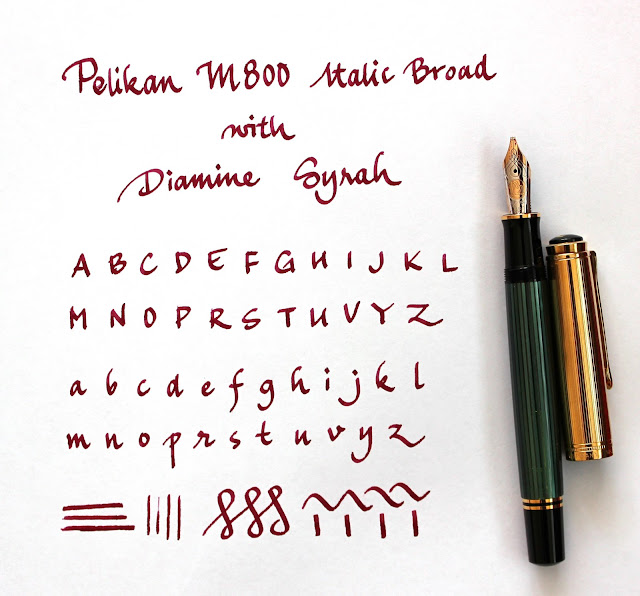 Pelikan M800 Italic Broad
with
Diamine Syrah
A B C D E F G H I J K L
M N O P R S T U V Y Z
a b c d e f g h i j k l
m n o p r s t u v y z